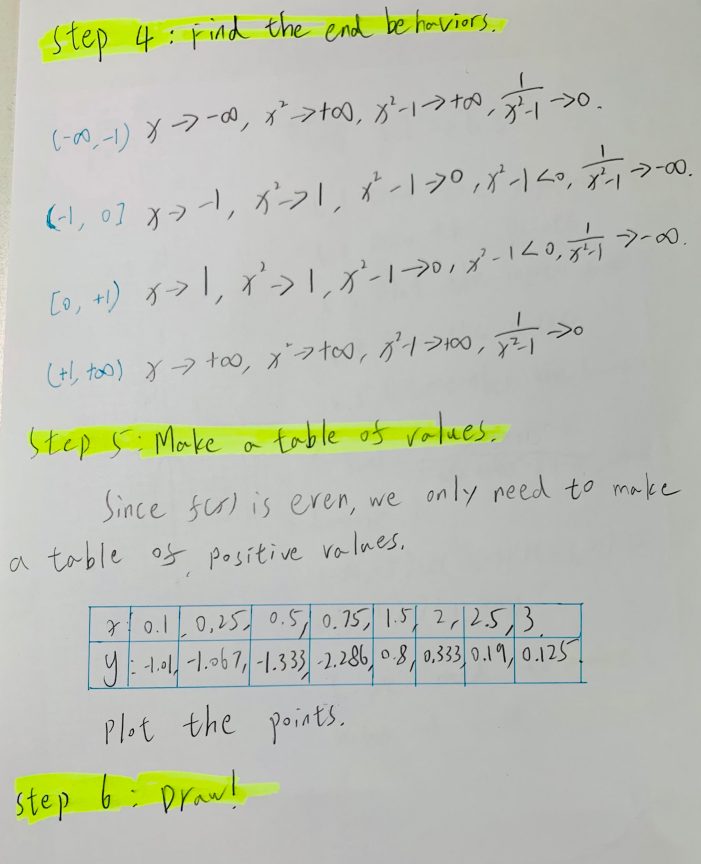 Step 4: Find the end behaviors.
(-∞, -1) x → -∞, x² → +∞, x²-1 → +∞, 1/(x²-1) → 0.
(-1, 0] x → -1, x² → 1, x²-1 → 0, x²-1 < 0, 1/(x²-1) → -∞.
[0, +1) x → 1, x² → 1, x²-1 → 0, x²-1 < 0, 1/(x²-1) → -∞.
(+1, +∞) x → +∞, x² → +∞, x²-1 → +∞, 1/(x²-1) → 0
Step 5: Make a table of values.
Since f(x) is even, we only need to make
a table of positive values.
x: 0.1, 0.25, 0.5, 0.75, 1.5, 2, 2.5, 3
y: -1.01, -1.067, -1.333, -2.286, 0.8, 0.333, 0.19, 0.125.
Plot the points.
Step 6: Draw!